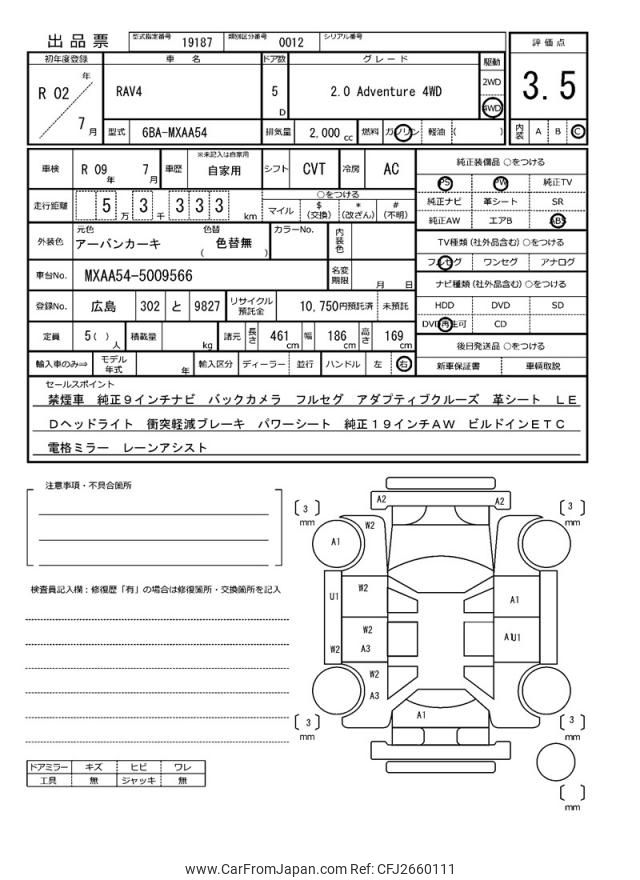 出品票 型式指定番号 19187 類別区分番号 0012 シリアル番号
評価点
3.5
内装 A B C
初年度登録 車名 ドア数 グレード 駆動
R 02 年 7 月 RAV4 5 D 2.0 Adventure 4WD 2WD 4WD
型式 6BA-MXAA54 排気量 2,000 cc 燃料 ガソリン 軽油 ( )
車検 R 09 年 7 月 車歴 ※未記入は自家用 自家用 シフト CVT 冷房 AC
走行距離 5 万 3 千 3 3 3 km ○をつける
マイル $(交換) *(改ざん) #(不明)
外装色 元色 アーバンカーキ 色替 ( 色替無 ) カラーNo. 内装色
車台No. MXAA54-5009566 名変期限 月 日
登録No. 広島 302 と 9827 リサイクル預託金 10,750円預託済 未預託
定員 5( )人 積載量 kg 諸元 長さ 461 cm 幅 186 cm 高さ 169 cm
輸入車のみ⇒ モデル年式 年 輸入区分 ディーラー 並行 ハンドル 左 右
純正装備品 ○をつける
PS PW 純正TV
純正ナビ 革シート SR
純正AW エアB ABS
TV種類(社外品含む)○をつける
フルセグ ワンセグ アナログ
ナビ種類(社外品含む)○をつける
HDD DVD SD
DVD再生可 CD
後日発送品 ○をつける
新車保証書 車輌取説
セールスポイント
禁煙車 純正9インチナビ バックカメラ フルセグ アダプティブクルーズ 革シート LE
Dヘッドライト 衝突軽減ブレーキ パワーシート 純正19インチAW ビルドインETC
電格ミラー レーンアシスト
注意事項・不具合箇所
検査員記入欄:修復歴「有」の場合は修復箇所・交換箇所を記入
ドアミラー キズ ヒビ ワレ
工具 無 ジャッキ 無
A2 A2
[3] mm [3] mm
W2
A1
U1 W2 A1
W2 A1U1
W2 A3
W2
A3
A1
[3] mm [3] mm
[ ] mm
www.CarFromJapan.com Ref: CFJ2660111